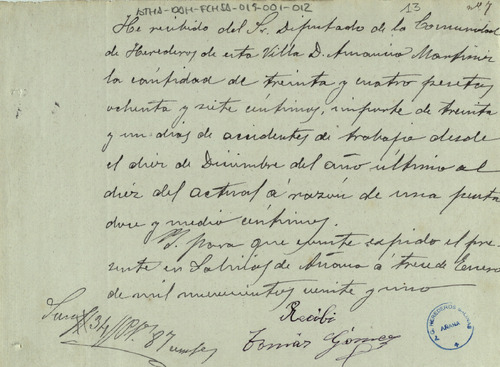 ATHA-DAH-FCHSA-015-001-012
13 nº 7
He recibido del Sr. Diputado de la Comunidad
de Herederos de esta Villa D. Amancio
la cantidad de treinta y cuatro pesetas
ochenta y siete céntimos, importe de treinta
y un dias de accidentes de trabajo desde
el diez de Diciembre del año último al
diez del actual á razón de una peseta
doce y medio céntimos.
Y para que conste expido el pre
sente en Salinas de Añana á trece de Enero
de mil novecientos veinte y uno
Recibí
Tomás Gómez
Son 34 Pts. 87
HEREDEROS
AÑANA